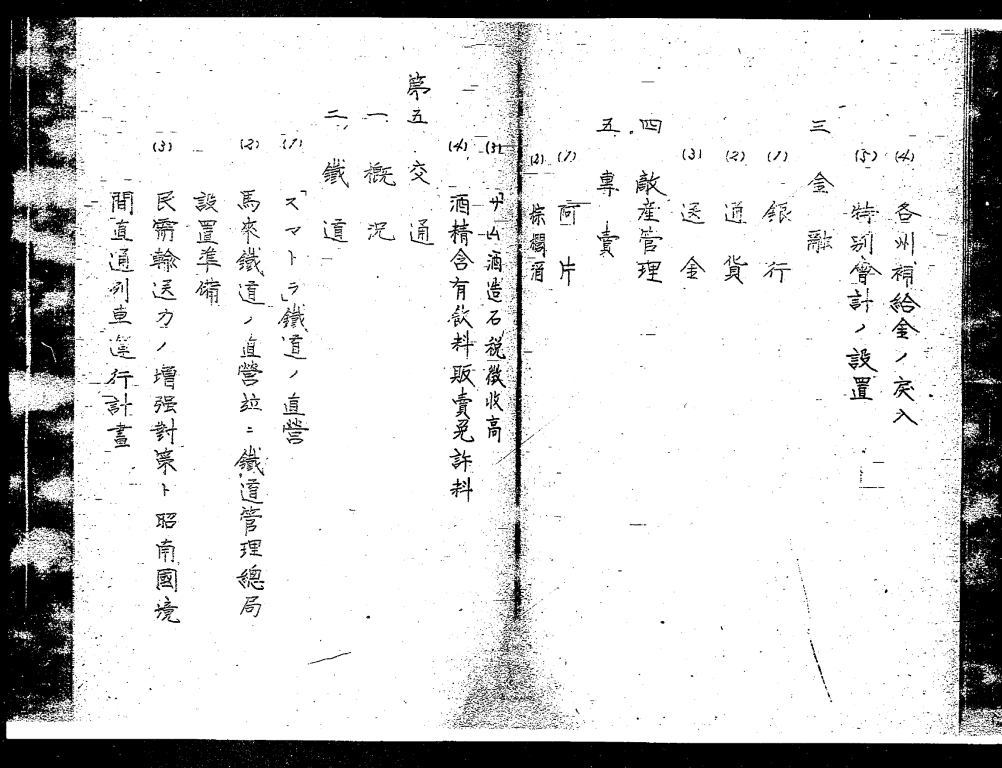 (4) 各州補給金ノ戻入
(5) 特別會計ノ設置
三 金融
(1) 銀行
(2) 通貨
(3) 送金
四 敵産管理
五 專賣
(1) 阿片
(2) 棕櫚酒
(3) 「サムスー」酒造石税徴收高
(4) 酒精含有飲料販賣免許料
第五 交通
一 概況
二、鐵道
(1) 「スマトラ」鐵道ノ直營
(2) 馬來鐵道ノ直營竝ニ鐵道管理總局
設置準備
(3) 民需輸送力ノ增强對策ト昭南國境
間直通列車運行計畫